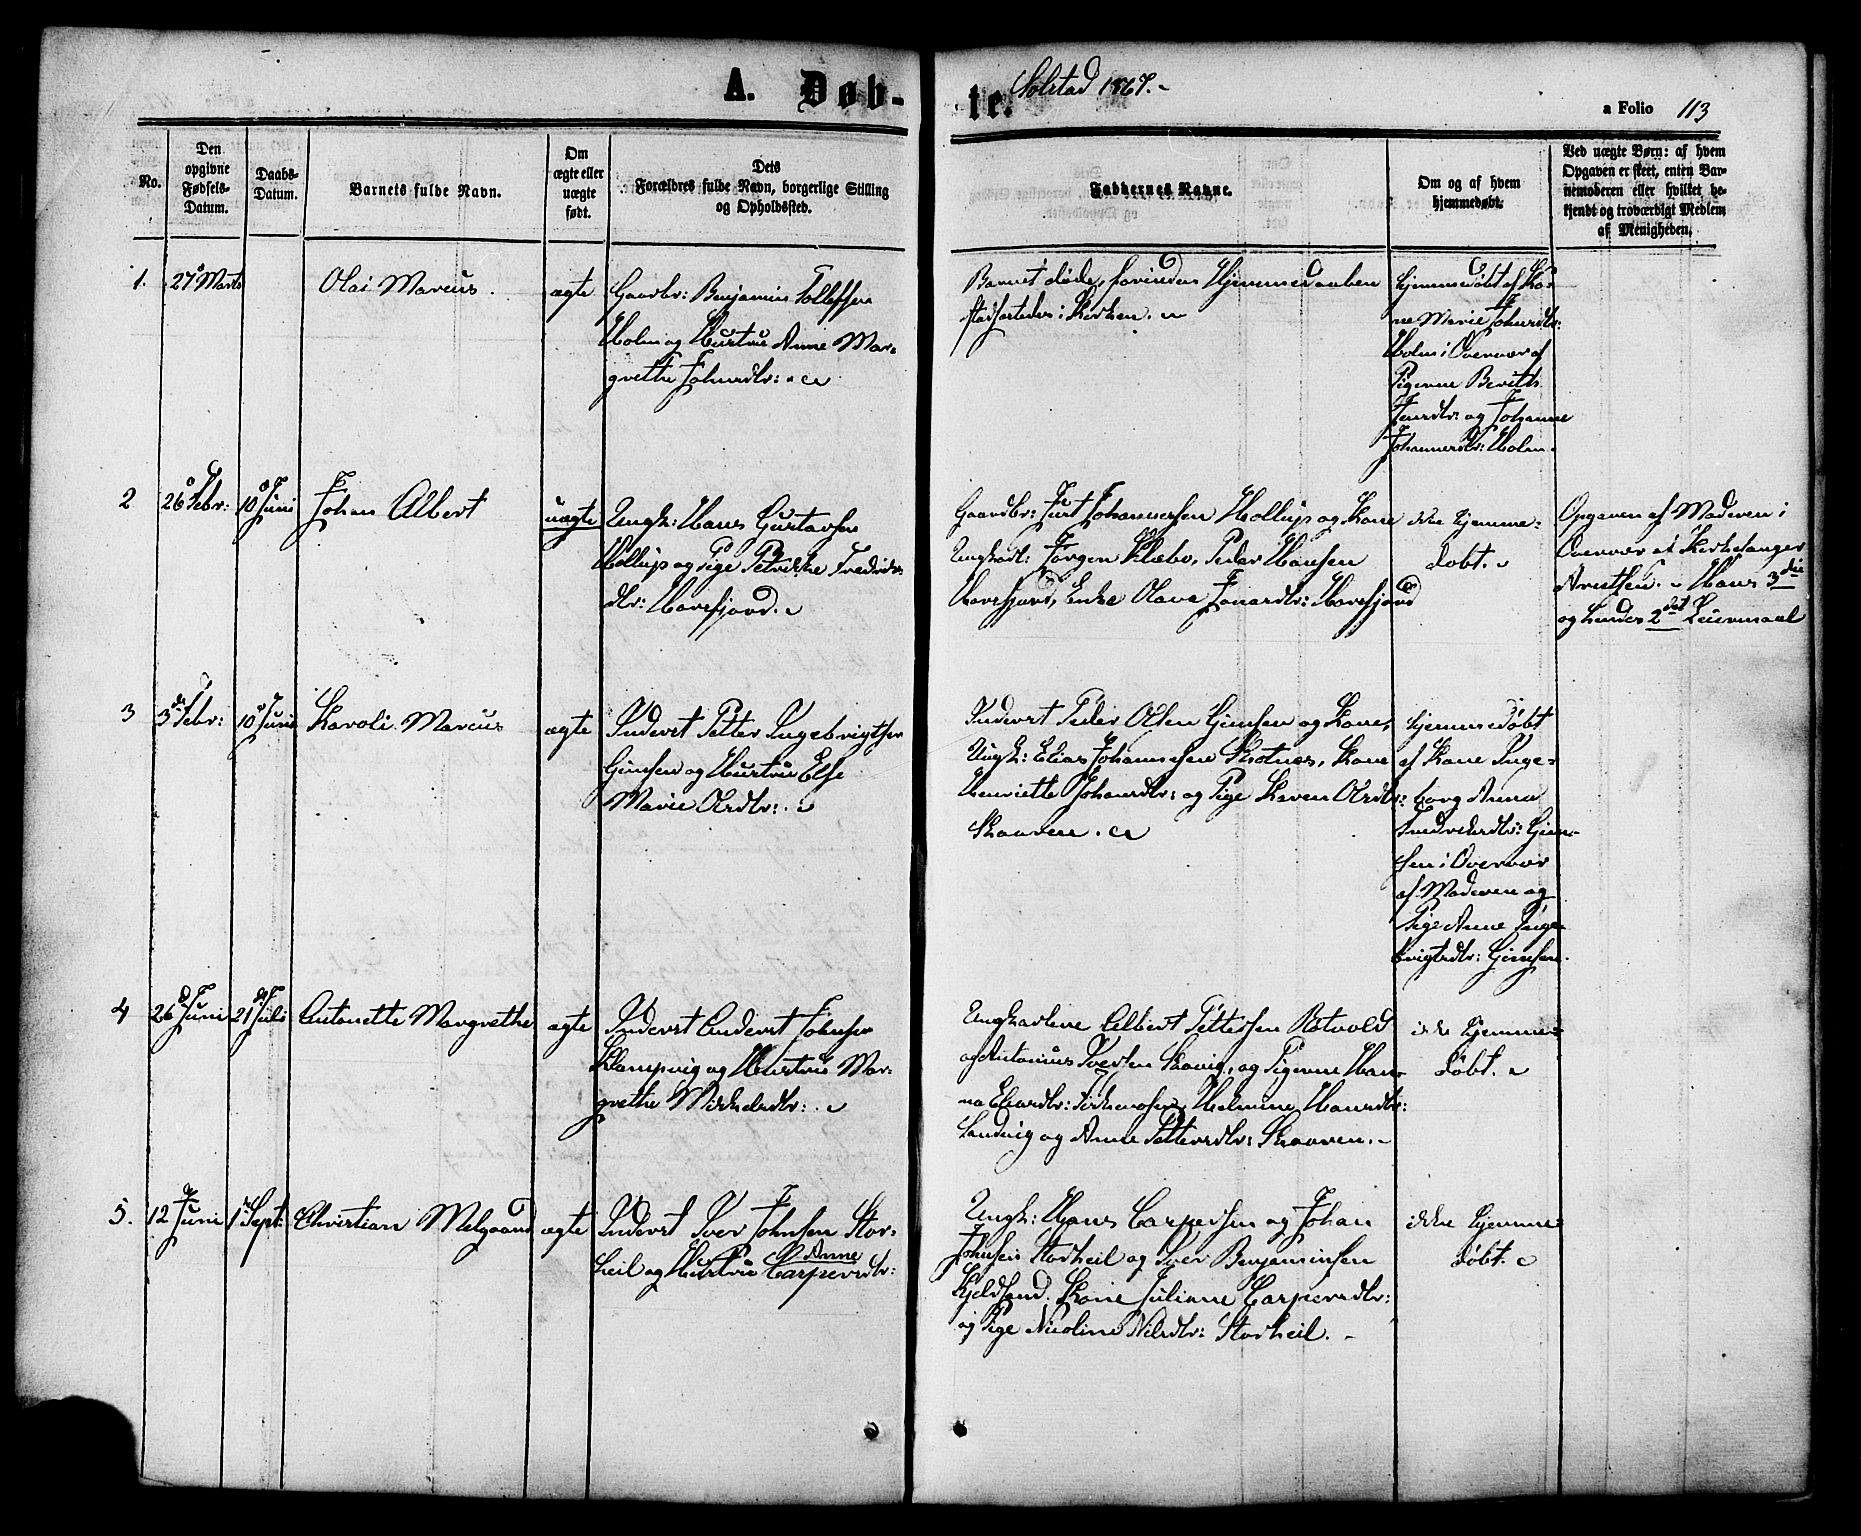 A. Døb-
te. Solstad 1867.-
a Folio 113
No.
Den
opgivne
Fødsels-
Datum.
Daabs-
Datum.
Barnets fulde Navn.
Om
ægte eller
uægte
født.
Dets
Forældres fulde Navn, borgerlige Stilling
og Opholdssted.
Faddernes Navne.
Om og af hvem
hjemmedøbt.
Ved uægte Børn: af hvem
Opgaven er skeet, enten Bar-
nemoderen eller hvilket be-
kjendt og troværdigt Medlem
af Menigheden.
1.
27 Marts
Olai Marcus.
ægte
Gaardbr: Benjamin Tollefsen
Holm og Hustru Anne Mar-
grethe Johnsdtr:
Barnet døde, forinden Hjemmedaaben
stadfæstedes i Kirken.
hjemmedøbt af Ko-
ne Marie Johnsdtr:
Holm i Overvær af
Pigerne Berith
Jensdtr: og Johanne
Johannesdtr: Holm.
2
26 Febr:
10 Juni
Johan Albert
uægte
Ungk: Hans Gustavsen
Hollup og Pige Petrikke Fredriks-
dtr: Havefjord.
Gaardbr: Johannesen Hollup og Kone
Ungkarl: Jørgen Klæbo, Peder Hansen
Havefjord, Enke Olava Jonasdtr: Havefjord
ikke hjemme-
døbt.
Opgaven af Moderen i
Overvær af Kirkesanger
Arntsen. - Hans 3die
og hendes 2det Leiermaal
3
3die Febr:
10 Juni
Karoli Marcus
ægte
Inderst Petter Ingebrigtsen
Gimsen og Hustru Else
Marie Olsdtr:
Inderst Peder Olsen Gimsen og Kone,
Ungk: Elias Johannesen Skotnes, Kone
Henriette Johansdtr: og Pige Karen Olsdtr:
Skaaren.
hjemmedøbt
af Kone Inge-
borg Anna
Fredriksdtr: Gim-
sen i Overvær
af Moderen og
Pige Anne Inge-
brigtsdtr: Gimsen.
4
26 Juni
21 Juli
Antonette Margrethe
ægte
Inderst Andert Johnsen
Klampvig og Hustru Mar-
grethe Mikkelsdtr:
Ungkarlene Albert Pettersen Ratvold
og Antonius Iversen Skavig, og Pigerne Han-
na Eliasdtr: Helmine Hansdtr:
Sandvig og Anne Pettersdtr: Skaaren.-
ikke hjemme-
døbt.
5.
12 Juni
1 Sept:
Christian Melgaard
ægte
Inderst Iver Johnsen Stor-
heil og Hustru Anne Caspersdtr:
Ungk: Hans Caspersen og Johan
Johnsen Storheil og Iver Benjaminsen
Kjeldsand. Kone Juliane Caspersdtr:
og Pige Nicoline Nilsdtr: Storheil.-
ikke hjemme-
døbt.